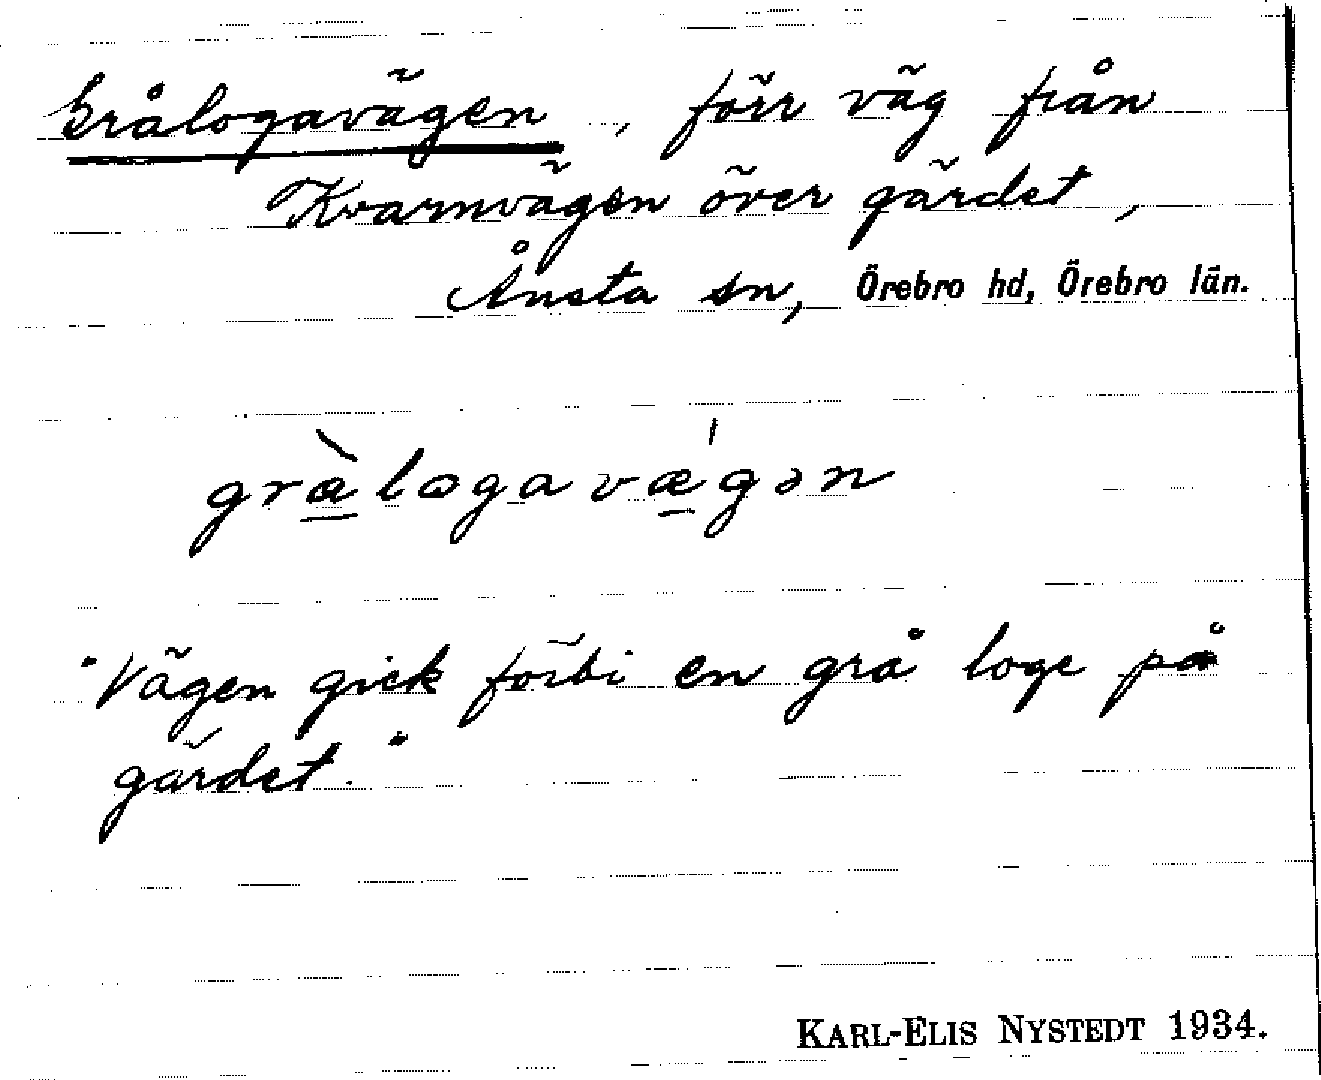 Grålogavägen, förr väg från
Kvarnvägen över gärdet,
Ånsta sn, Örebro hd, Örebro län.
grà̠logavǽ̠gən
"Vägen gick förbi en grå loge på
gärdet."
KARL-ELIS NYSTEDT 1934.